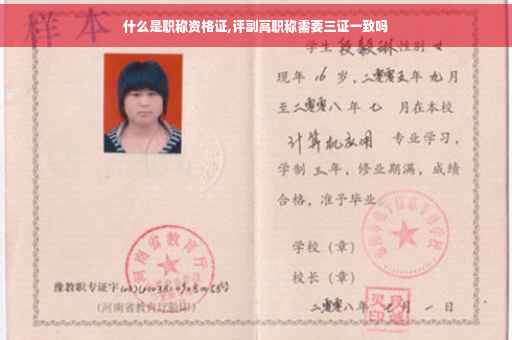 什么是职称资格证,评副高职称需要三证一致吗
样本
学生 段毅琳 性别 女
现年 16 岁,二零零五年 九月
至二零零八年 七 月在本校
计算机应用 专业学习,
学制 三 年,修业期满,成绩
合格,准予毕业
学校(章)
校长(章)
二零零八年 七 月 一 日
河南省教育厅
豫教职专证字
(河南省教育厅验印)